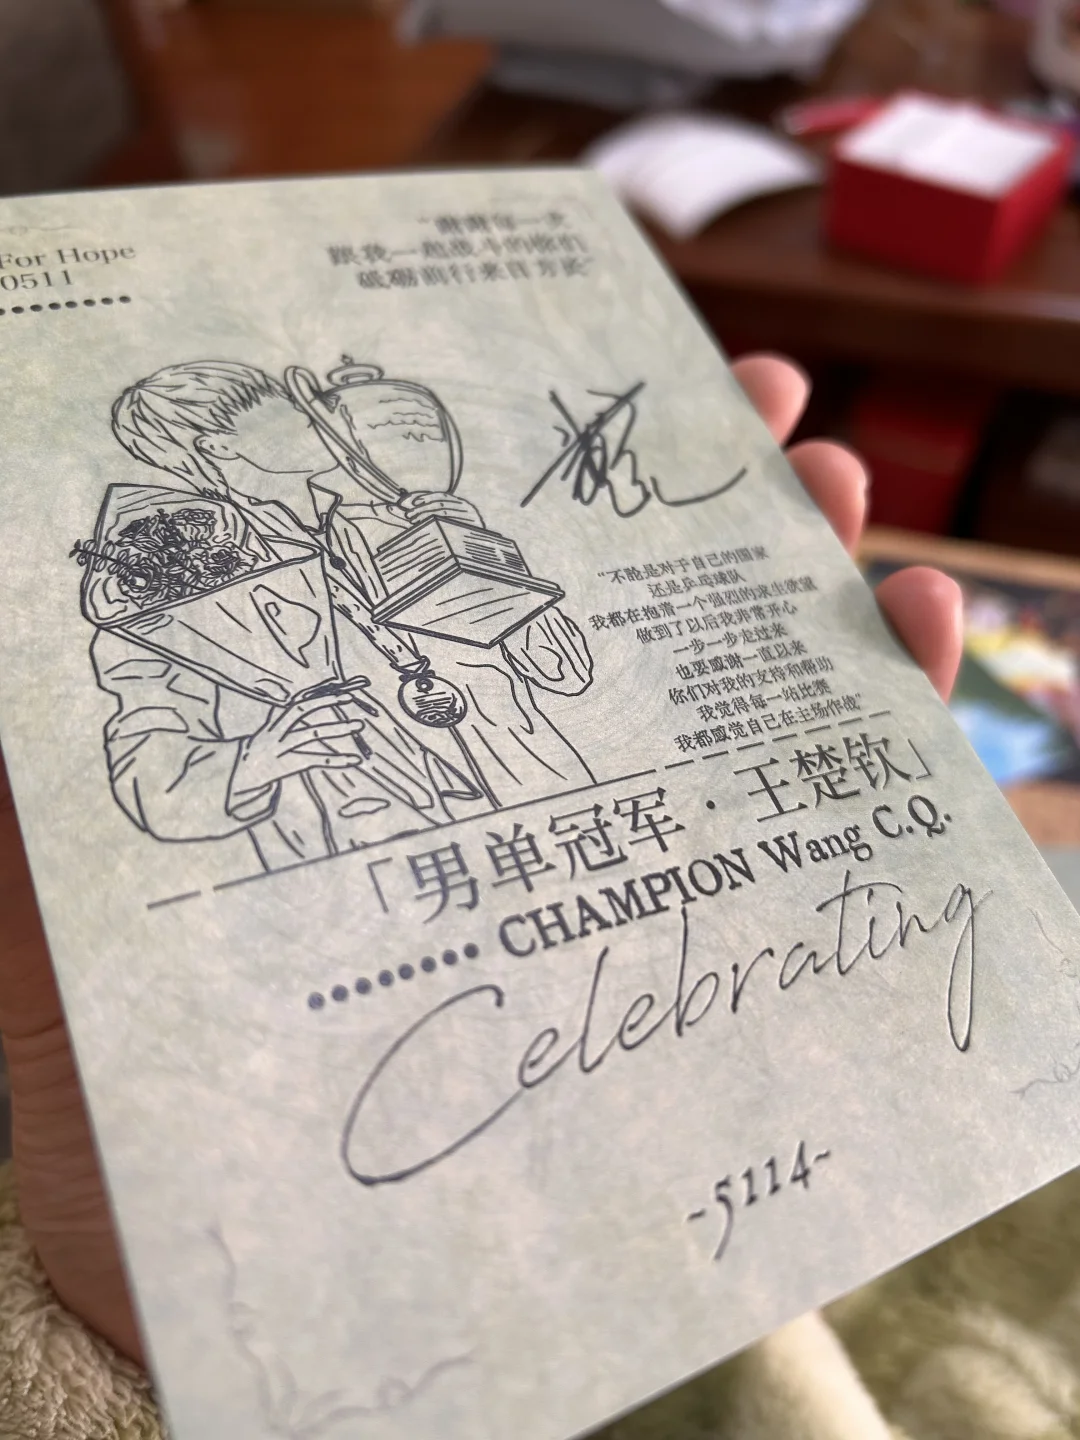 For Hope
0511
"谢谢每一次
跟我一起战斗的你们
砥砺前行来日方长"
"不论是对于自己的国家
还是乒乓球队
我都在抱着一个强烈的求生欲望
做到了以后我非常开心
一步一步走过来
也要感谢一直以来
你们对我的支持和帮助
我觉得每一站比赛
我都感觉自己在主场作战"
「男单冠军·王楚钦」
CHAMPION Wang C.Q.
Celebrating
-5114-